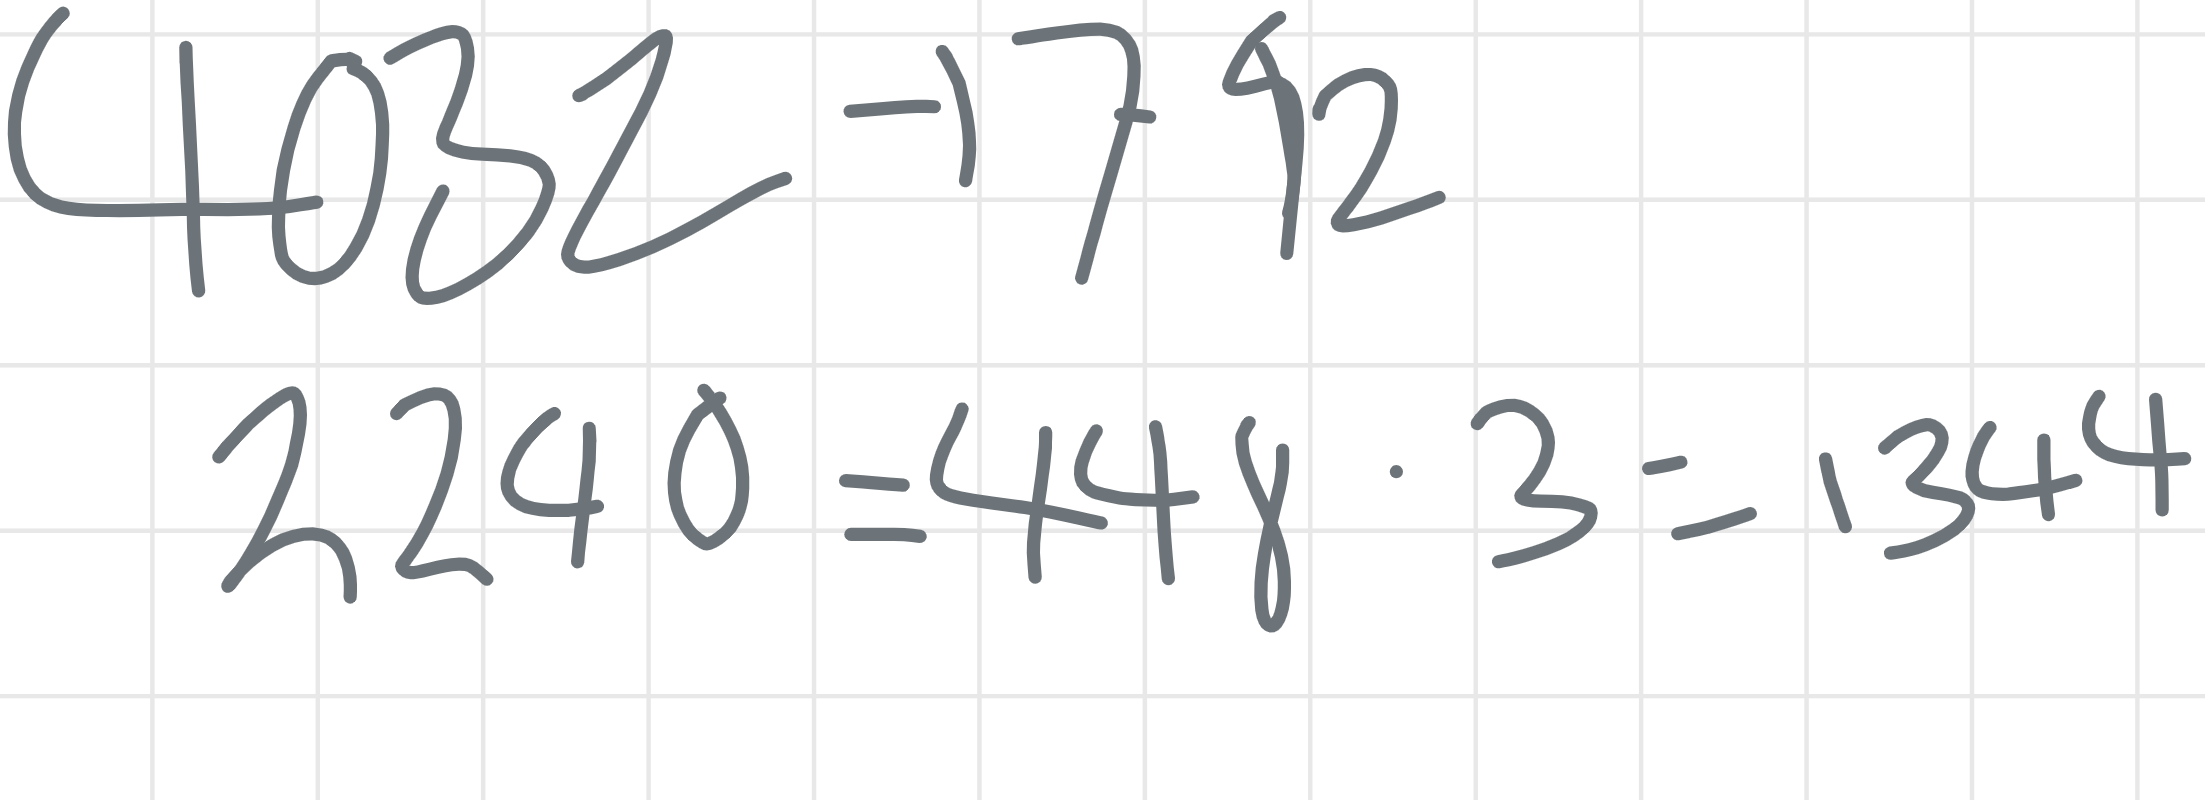 4032 - 1792
2240 = 448 · 3 = 1344